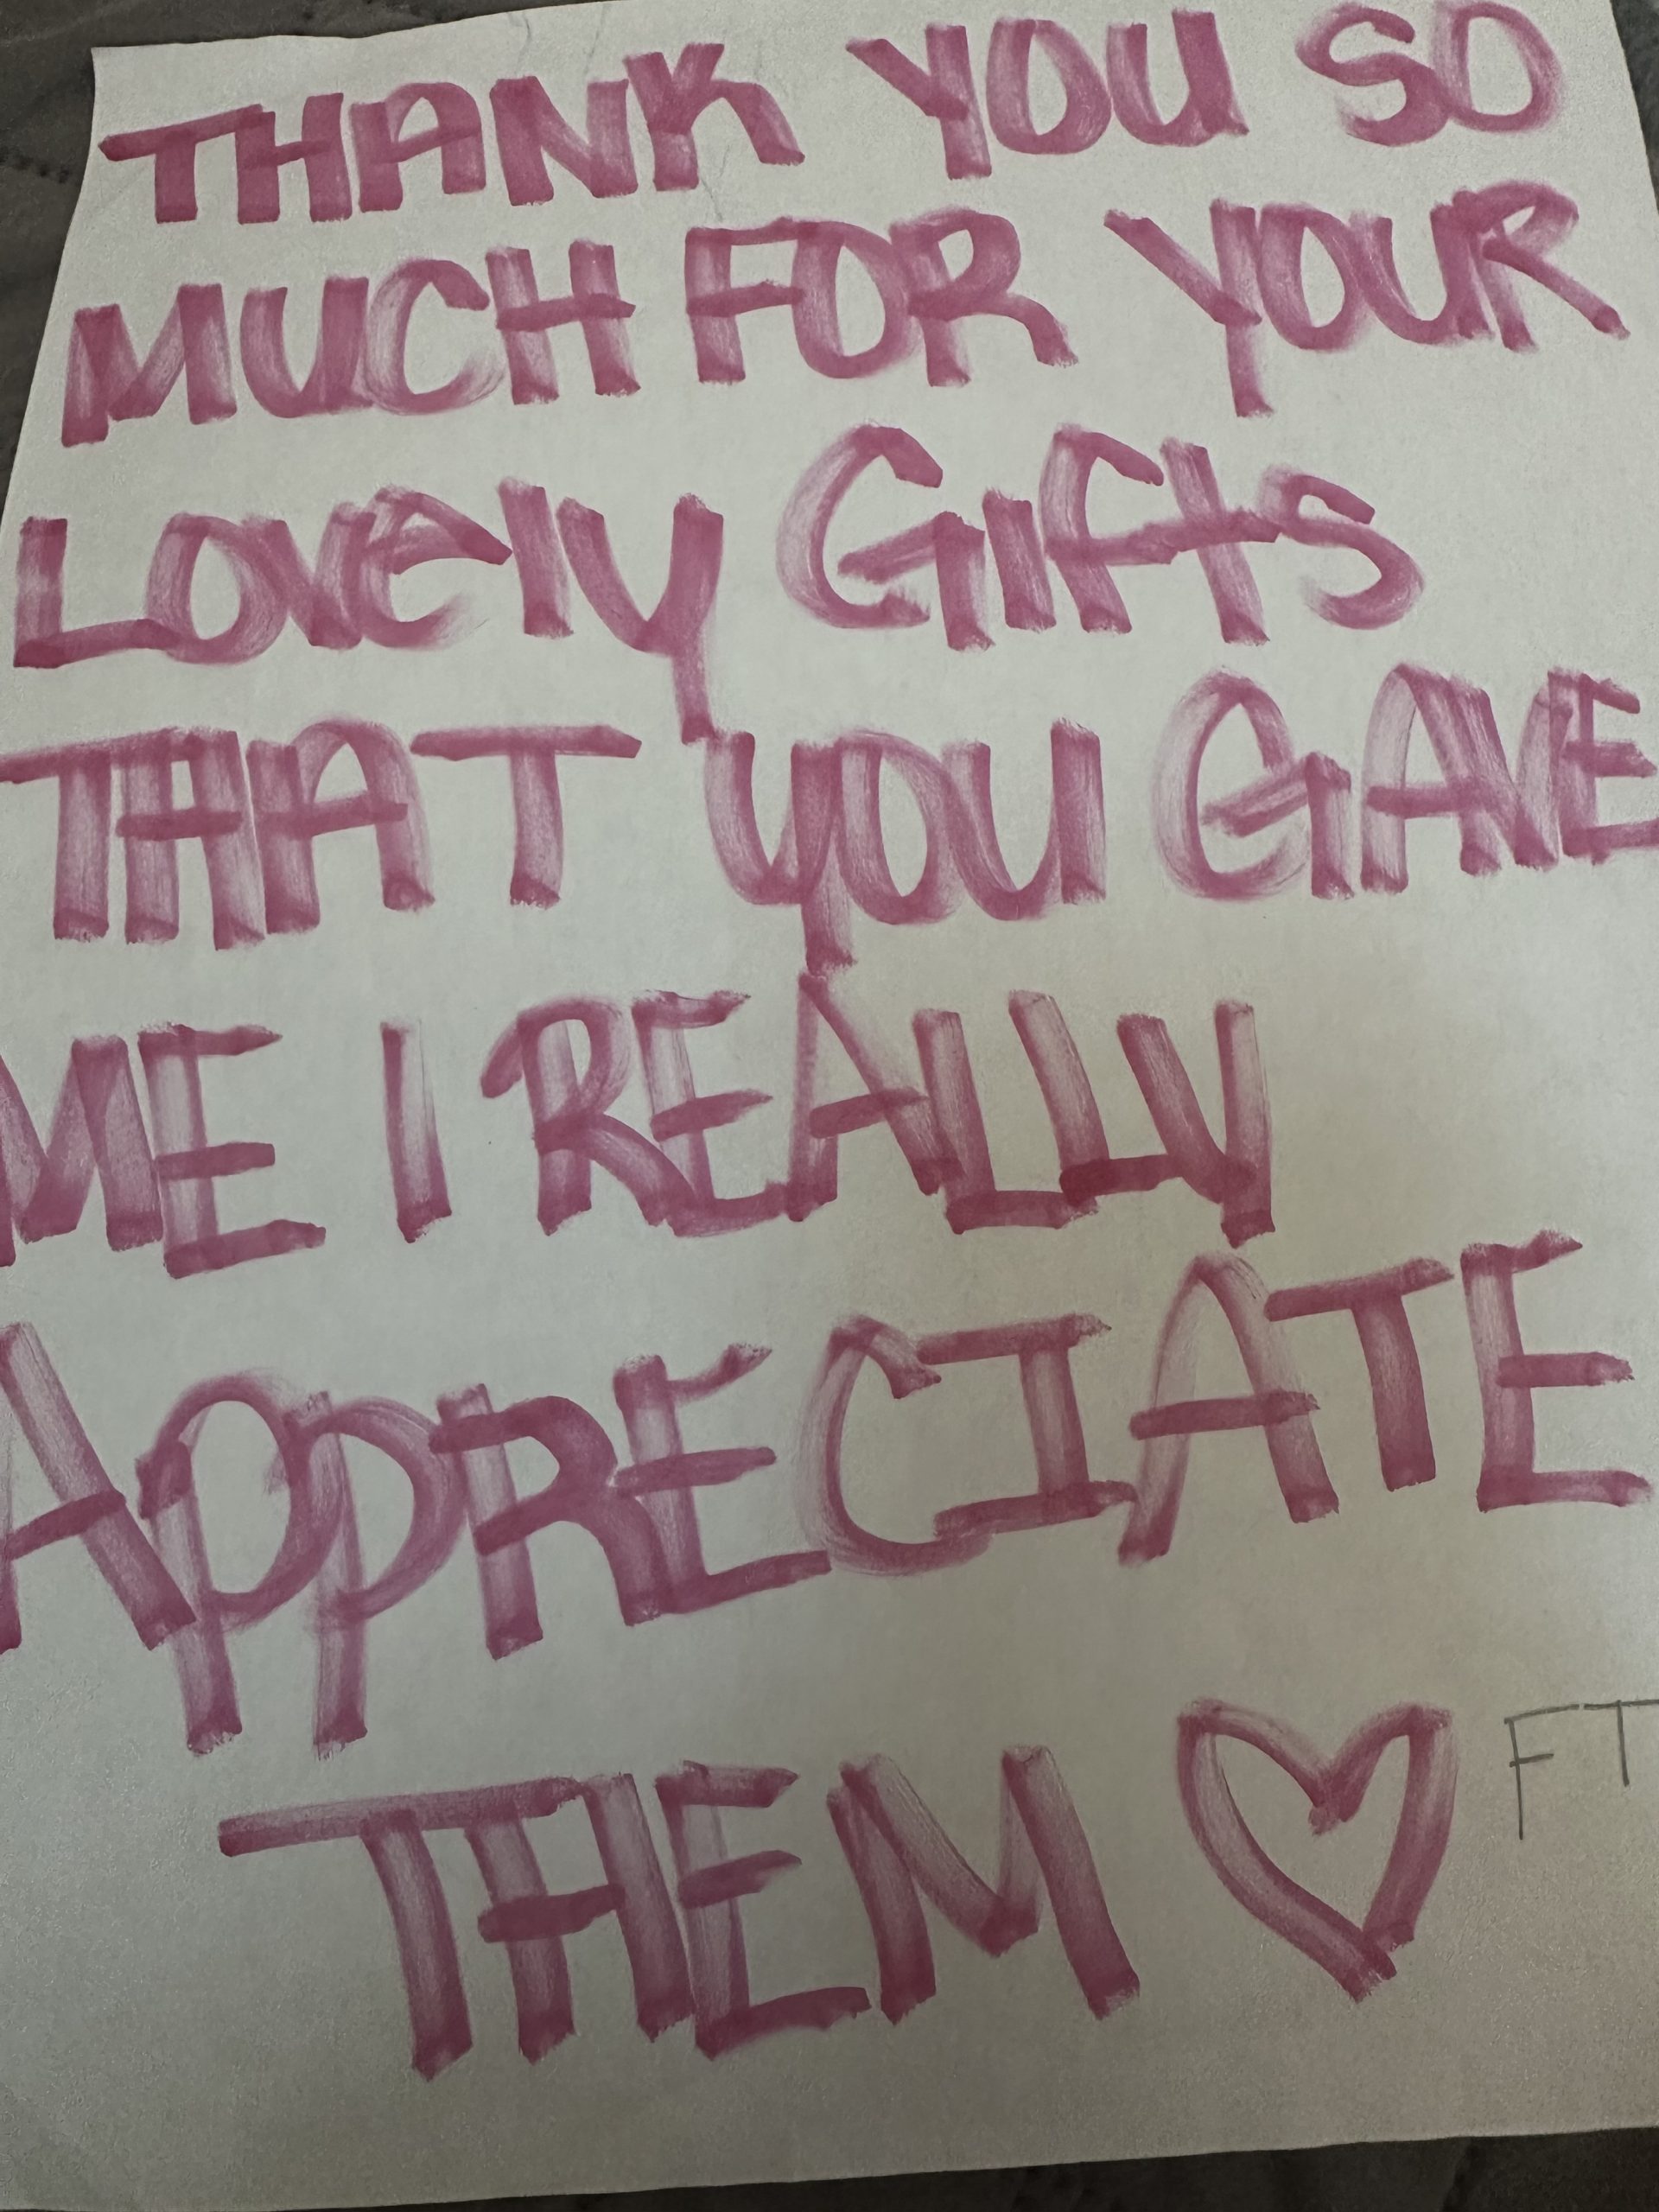 THANK YOU SO
MUCH FOR YOUR
LOVely GIfts
THAT YOU GAVE
ME I REALLY
APPRECIATE
THEM ♡ FT